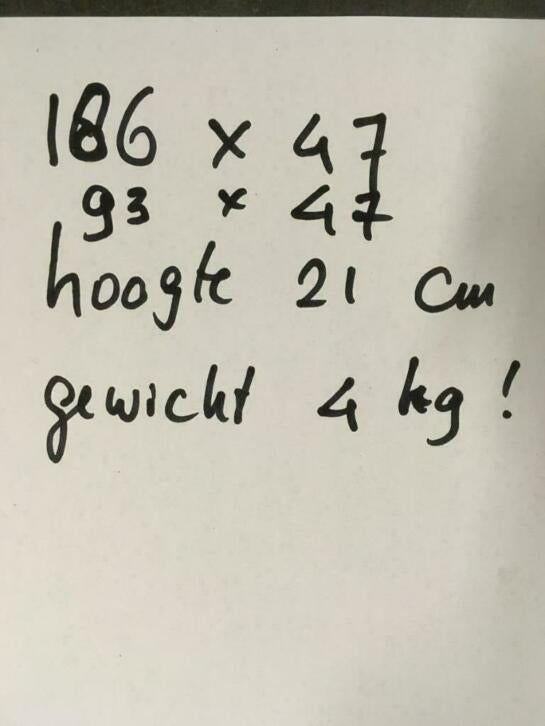 186 x 47
93 x 47
hoogte 21 cm
gewicht 4 kg !